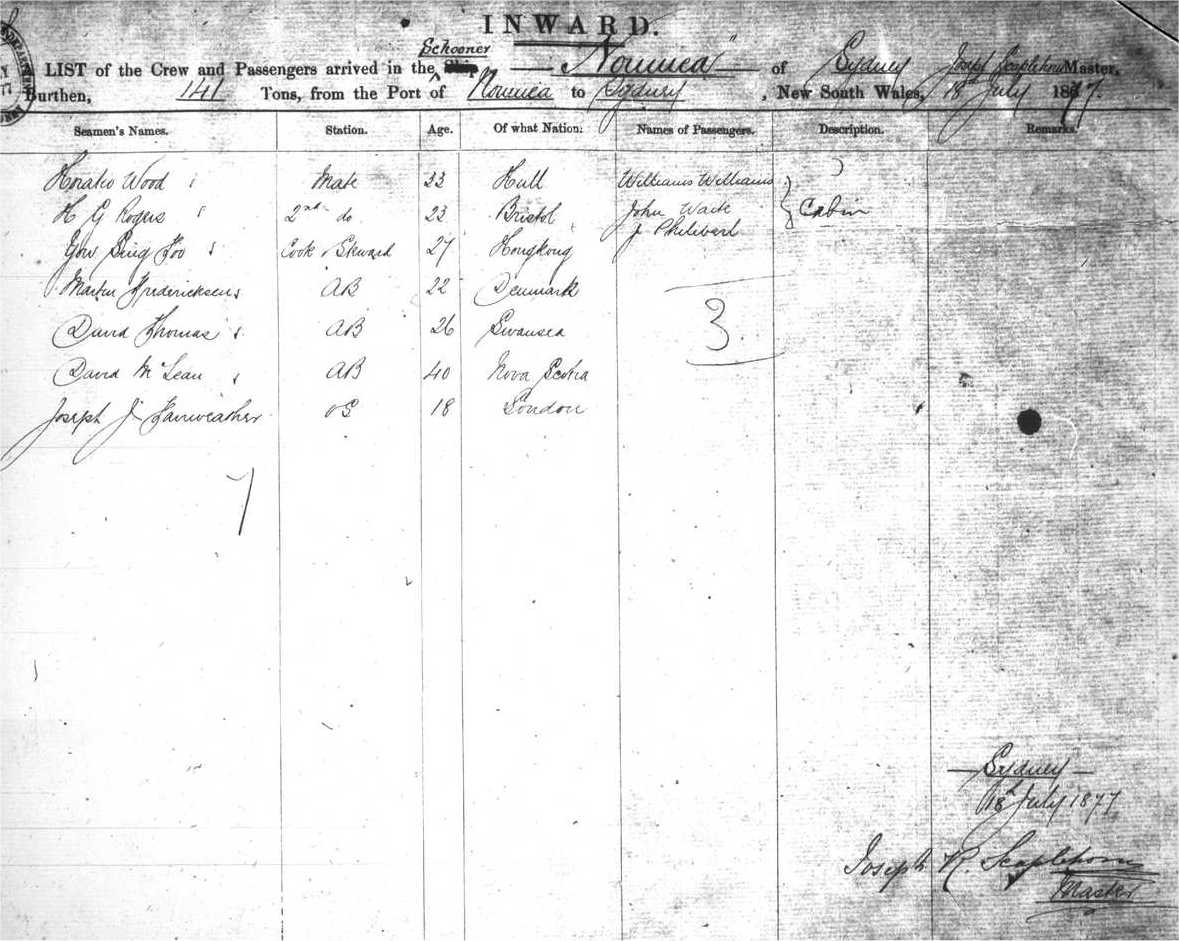 INWARD.
Schooner
LIST of the Crew and Passengers arrived in the Ship "Noumea" of Sydney Joseph Scaplehorn Master,
Burthen, 141 Tons, from the Port of Noumea to Sydney, New South Wales, 18 July 1877.
Seamen's Names. Station. Age. Of what Nation. Names of Passengers. Description. Remarks.
Horatio Wood Mate 33 Hull Williams Williams
H G Rogers 2nd do 23 Bristol John Waite Cabin
J Philibert
Sing Foo Cook & Steward 27 Hongkong
Martin Fredericksen AB 22 Denmark
3
David Thomas AB 26 Swansea
David McLean AB 40 Nova Scotia
Joseph J Fairweather OS 18 London
7
Sydney
18th July 1877
Joseph R. Scaplehorn
Master